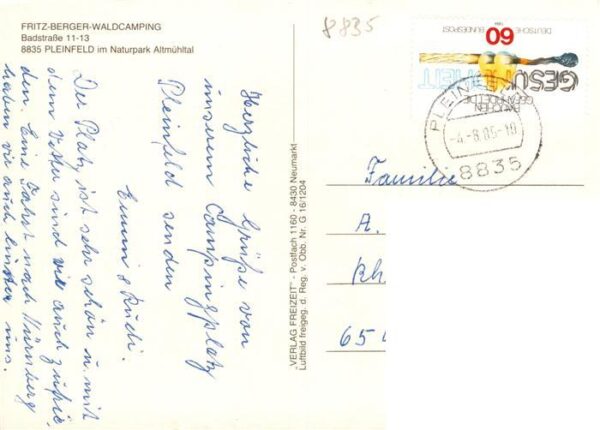 FRITZ-BERGER-WALDCAMPING
Badstraße 11-13
8835 PLEINFELD im Naturpark Altmühltal
8835
Herzliche Grüße von
unserem Campingplatz
Pleinfeld senden
Emmi & Rudi.
Der Platz ist sehr schön u. mit
dem Wetter sind wir auch zufrie
den. Eine Fahrt nach Nürnberg
haben wir auch hinter uns.
"VERLAG FREIZEIT" - Postfach 1160 - 8430 Neumarkt
Luftbild freigeg. d. Reg. v. Obb. Nr. G 16/1204
60
DEUTSCHE BUNDESPOST
RAUCHEN
GEFÄHRDET DIE
GESUNDHEIT
PLEINFELD
-4.-8.85-19
8835
Familie
A.
Rh
65